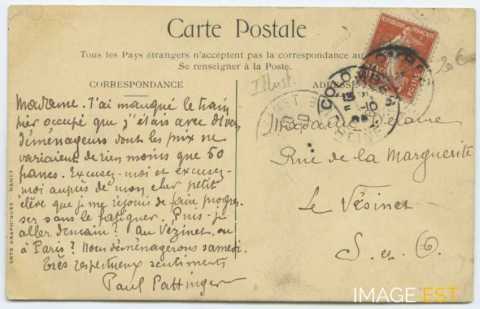 Carte Postale
Tous les Pays étrangers n'acceptent pas la correspondance au
Se renseigner à la Poste.
CORRESPONDANCE
Madame. J'ai manqué le train
hier occupé que j'étais avec divers
déménageurs dont les prix ne
variaient de rien moins que 50
francs. Excusez-moi et excusez-
moi auprès de mon cher petit
élève que je me réjouis de faire progres-
ser sans le fatiguer. Puis-je
aller demain? Au Vézinet, ou
à Paris? Nous déménagerons samedi.
très respectueux sentiments
Paul Pattinger
Illust.
AD
Madame
Rue de la Marguerite
Le Vésinet
S. et O.
ARTS GRAPHIQUES NANCY
IMAGE'EST